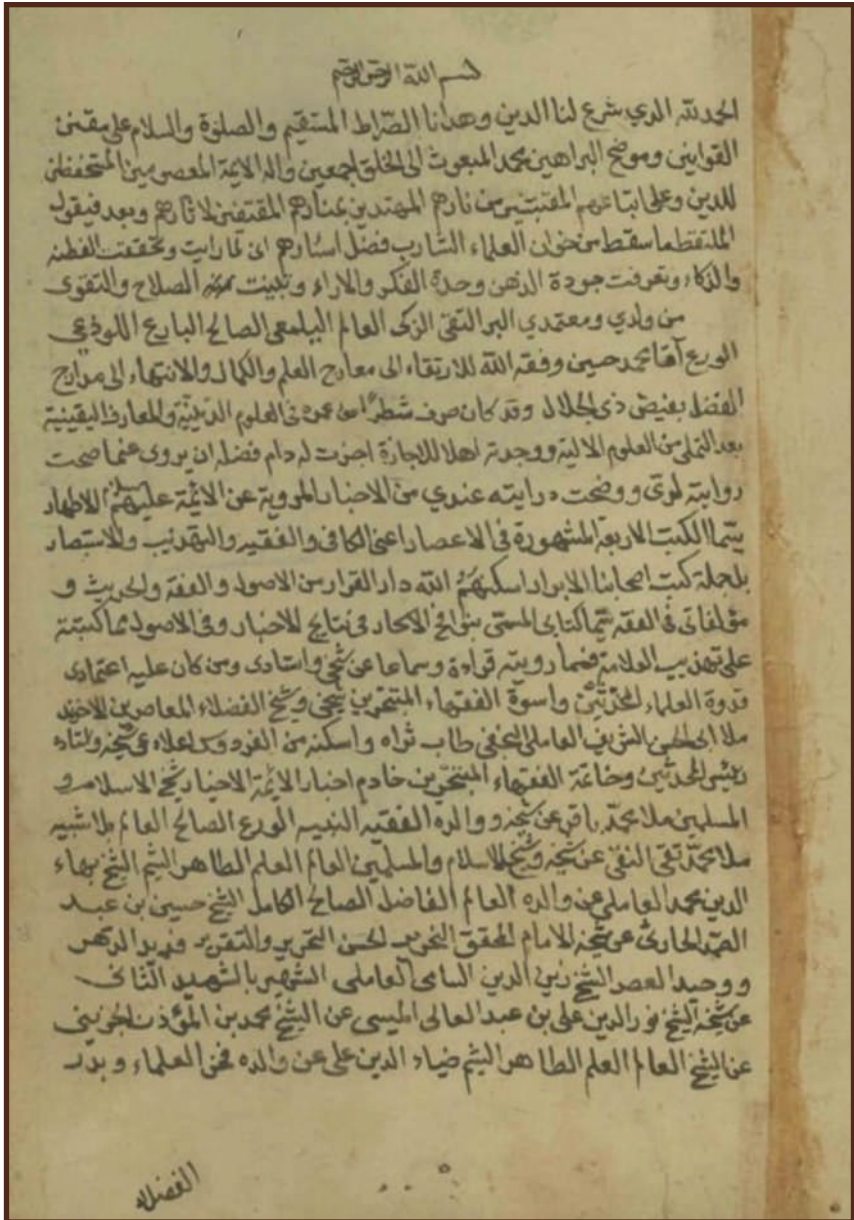 بسم الله الرحمن الرحيم
الحمد لله الذي شرع لنا الدين وهدانا الصراط المستقيم والصلوة والسلام على مقنن
القوانين وموضح البراهين محمد المبعوث الى الخلق اجمعين واله الائمة المعصومين المتحفظين
للدين وعلى اتباعهم المقتبسين من نارهم المهتدين بمنارهم المقتفين لاثارهم وبعد فيقول
الملتقط ما سقط من خوان العلماء الشارب فضل اسئارهم انى لما رايت وتحققت الفطنه
والذكاء وتعرفت جودة الذهن وحدة الفكر والاراء وتبينت الصلاح والتقوى
من ولدي ومعتمدي البر التقى الزكى العالم اليلمعى الصالح البارع اللوذعى
الورع آقا محمد حسين وفقه الله للارتقاء الى معارج العلم والكمال والانتهاء الى مدارج
الفضل بفيض ذى الجلال وقد كان صرف شطرًا من عمره فى العلوم الدينيّة والمعارف اليقينية
بعد التملى من العلوم الالية ووجدته اهلا للاجازة اجزت له دام فضله ان يروى عنى ما صحت
روايته لدى ووضحت درايته عندي من الاخبار المروية عن الائمة عليهم الاطهار
سيما الكتب الاربعة المشهورة فى الاعصار اعنى الكافى والفقيه والتهذيب والاستبصار
بل جملة كتب اصحابنا الابرار اسكنهم الله دار القرار من الاصول والفقه والحديث و
مؤلفاتى فى الفقه سيما كتابى المسمى بنوائح الافكار فى نتايج الاخبار وفى الاصول مما كتبته
على تهذيب العلامة فمما رويته قراءة وسماعا عن شيخى واستادى ومن كان عليه اعتمادى
قدوة العلماء المحدثين واسوة الفقهاء المتبحرين شيخى وشيخ الفضلاء المعاصرين الاخوند
ملا ابى الحسن الشريف العاملى النجفى طاب ثراه واسكنه من الفردوس اعلاه عن شيخه واستاده
رئيس المحدثين وخاتمة الفقهاء المتبحرين خادم اخبار الائمة الاخيار شيخ الاسلام و
المسلمين ملا محمد باقر عن شيخه ووالده الفقيه النبيه الورع الصالح العالم بلا شبيه
ملا محمد تقى النقى عن شيخه وشيخ الاسلام والمسلمين العالم العلم الطاهر الشيم الشيخ بهاء
الدين محمد العاملى عن والده العالم الفاضل الصالح الكامل الشيخ حسين بن عبد
الصمد الحارثى عن شيخه الامام المحقق النحرير الحسن التحرير والتقرير فريد الدهر
ووحيد العصر الشيخ زين الدين السامى العاملى الشهير بالشهيد الثانى
عن شيخه الشيخ نور الدين على بن عبد العالى الميسى عن الشيخ محمد بن المؤذن الجزينى
عن الشيخ العالم العلم الطاهر الشيم ضياء الدين على عن والده فخر العلماء وبدر
الفضلاء